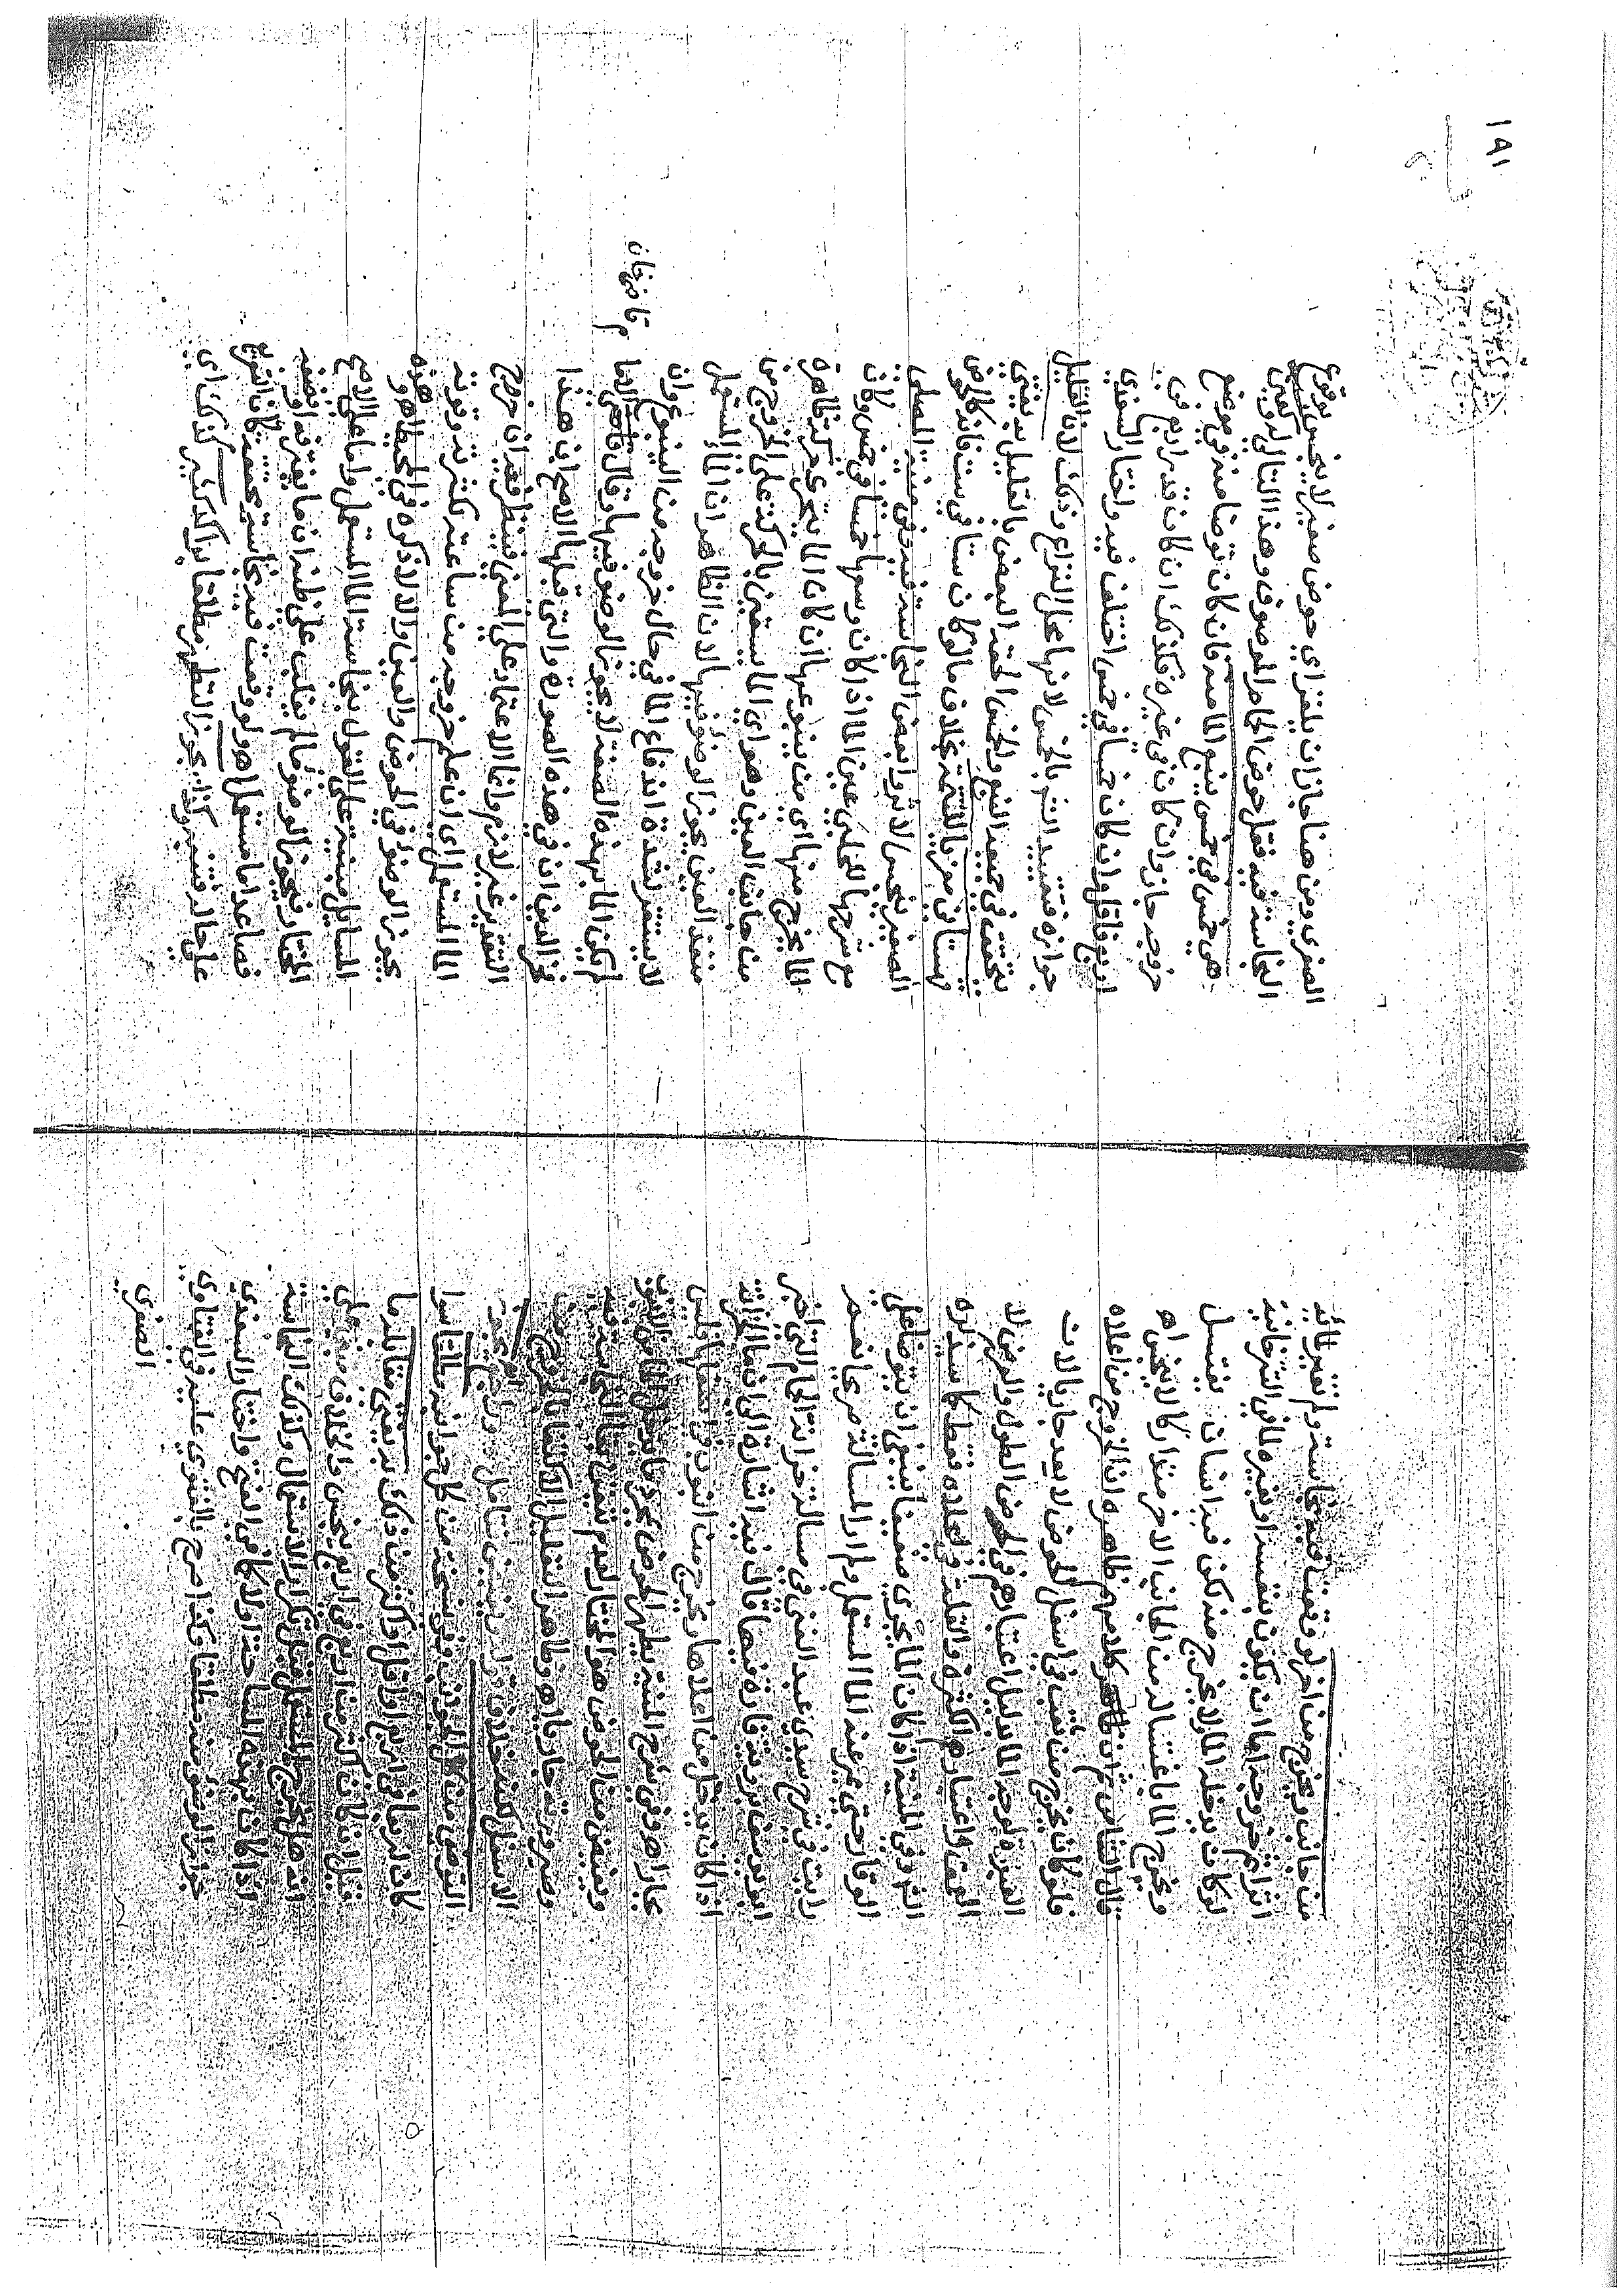 من جانب ويخرج من اخر لو وقعت فيه نجاسة ولم تغير
اثرا ثم خروجه اما ان يكون بنفسه او بغيره لما في التترخانيه
لو كان يدخله الماء ولا يخرج منه لكن فيه انسان يغتسل
ويخرج الماء باغتساله من الجانب الاخر متداركا لا ينجس اه
قال النفاس ثم ان كلامهم ظاهره ان الخروج من اعلاه
فلو كان يخرج من ثقب في اسفل الحوض لا يعد جاريا لان
العبرة لوجه الماء بدليل اعتبارهم في الحوض الطول والعرض لا
العمق واعتبارهم الكثرة والقلة في اعلاه فقط كما سنذكره
انتهى وفي المنية اذا كان الماء يجري ضعيفا ينبغي ان يتوضا على
الوقار حتى يمر عنه الماء المستعمل ولم ار المسالة صريحا نعم
رايت في شرح سيدي عبد الغني في مسالة خزانة الحمام التي اخبر
ابو يوسف برؤية فارة فيها قال فيه اشارة الى ان ماء الخزانة
اذا كان يدخل من اعلاها ويخرج من انبوب في اسفلها فليس
بجار اه وفي شرح المنية يطهر الحوض بمجرد ما يدخل الماء من الانبوب
ويفيض من الحوض هو المختار لعدم تيقن بقاء النجاسة فيه
وصيرورته جاريا اه وظاهر التعليل الاكتفاء بالخروج من
الاسفل لكنه خلاف قوله ويفيض فتامل وراجع يجوز
التوضي من كل الحوض وفي نسخة من كل جوانبه مطلقا سوا
كان اربعا في اربع او اقل او اكثر منه ذلك به يفتى مقابله ما
قيل انه كان اكثر من اربع في اربع ينجس والخلاف مبني على
انه هل يخرج المستعمل قبل تكرار الاستعمال وكذلك النجاسة
اذا كان بهذه المساحة او لا كما في الفتح واختار السغدي
جواز الوضوء منه مطلقا وكذا صرح بالفتوى عليه في الفتاوى
الصغرى
١٩١
الصغرى ومن هنا جاز ان يلغز اي حوض صغير لا ينجس بوقوع
النجاسة فيه فقل حوض الحمام الموصوف وهذا التالي لو عين
هي خمس في خمس ينبع الماء منه فان كان توضا منه في موضع
خروجه جاز وان كان في غيره فكذلك ان كان قدر اربع في
اربع فاقل وان كان خمسا في خمس اختلف فيه واختار السغدي
جوازه فتقييد بالخمس لانها محل النزاع وذلك لان القليل
يتحقق في حيز النبع والخمس الحقه البعض بالقليل به يفتى
بستان من بالقلة بخلاف ما لو كان ستا في ست فانه كالحوض
الصغير ينجس لاثر وبعض النجاسة فيه وفي منية المصلي
مع شرحها للحلبي عين الماء اذا كان وسعها خمسا في خمس وكان
الماء يخرج منها اي من ينبوعها ان كان الماء يتحرك حركة ظاهرة
من جانب العين وهو اي الماء يستعين بالحركة على الخروج من
منفذ العين يجوز الوضوء فيها لان الظاهر ان الماء المستعمل
لا يستقر لشدة اندفاع الماء في حال خروجه من الينبوع وان
لم يكن الماء بهذه الصفة لا يجوز الوضوء فيها وقال قاضي خان
قاضيخان
فخر الدين ان في هذه الصورة والتي قبلها الاصح ان هذا
التقدير غير لازم وانما الاعتماد على المعنى فينظر فيه ان خرج
الماء المستعمل اي ان علم خروجه من ساعته لكثرته وقوته
يجوز الوضوء في الحوض والعين والا لا ذكره في المحيط وهذه
المسايل مبنية على القول بنجاسة الماء المستعمل واما على الاصح
المختار فيجوز الوضوء ما لم يغلب على ظنه ان ما يغترفه او نصفه
فصاعدا ماء مستعمل اه ولو وقعت فيه نجاسة تحققت كان التنويع
على حاله فتنبه وكذا يجوز التطهير مطلقا براكد كثير كذلك اي